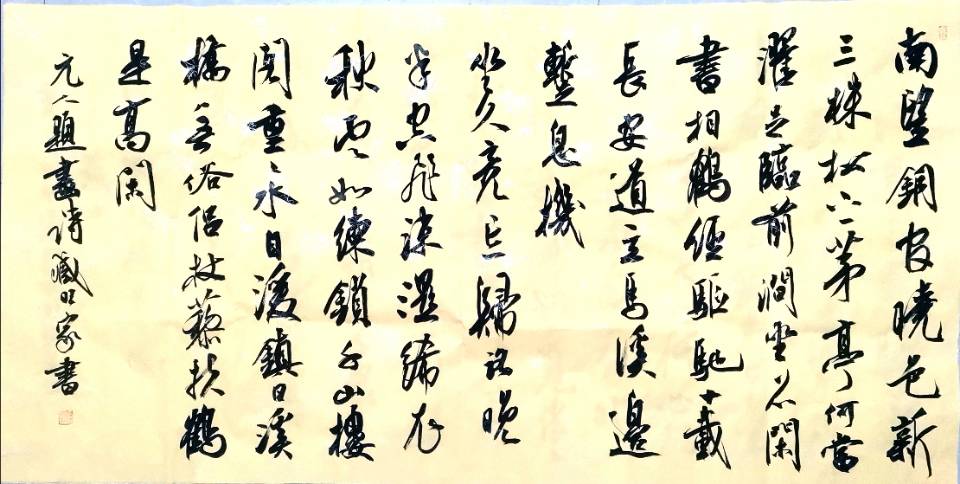 南望銅官曉色新
三株松下一茅亭何當
濯足臨前澗坐石閑
書相鶴經驅馳十載
長安道立馬溪邊
暫息機
坐久竟忘歸路晚
半空飛沫濕絺衣
秋雲如練鎖千山樓
閣重重水日溪
橋無俗侶杖藜扶鶴
是高閑
元人題畫詩
家書